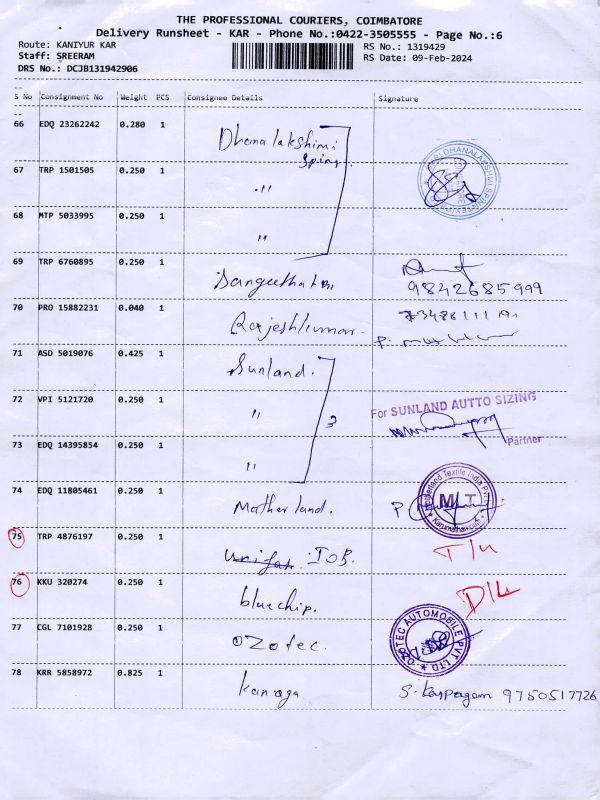 THE PROFESSIONAL COURIERS, COIMBATORE
Delivery Runsheet - KAR - Phone No.:0422-3505555 - Page No.:6
Route: KANIYUR KAR RS No.: 1319429
Staff: SREERAM RS Date: 09-Feb-2024
DRS No.: DCJB131942906
S No Consignment No Weight PCS Consignee Details Signature
66 EDQ 23262242 0.280 1 Dhanalakshmi
Spins
67 TRP 1501505 0.250 1 "
68 MTP 5033995 0.250 1 "
69 TRP 6760895 0.250 1 Sangeetha
9842685999
70 PRO 15882231 0.040 1 Rajeshkumar
71 ASD 5019076 0.425 1 Sunland.
72 VPI 5121720 0.250 1 " 3 For SUNLAND AUTTO SIZING
Partner
73 EDQ 14395854 0.250 1 "
74 EDQ 11805461 0.250 1 Motherland. M T
75 TRP 4876197 0.250 1 IOB.
76 KKU 320274 0.250 1 bluechip. D/L
77 CGL 7101928 0.250 1 Ozotec. OZOTEC AUTOMOBILE PVT LTD
78 KRR 5858972 0.825 1 kanaga S. 9750517726